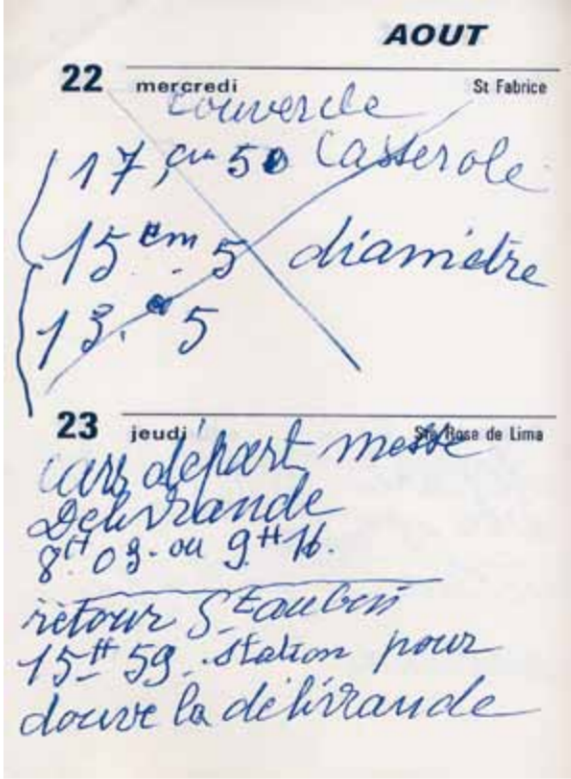 AOUT
22 mercredi St Fabrice
couvercle
17, cm 50 Casserole
15 cm 5 diamètre
13. 5
23 jeudi Ste Rose de Lima
cars départ messe
Délivrande
8H 09 - ou 9H 16.
retour St Aubin
15H 59. station pour
douvre la délivrande